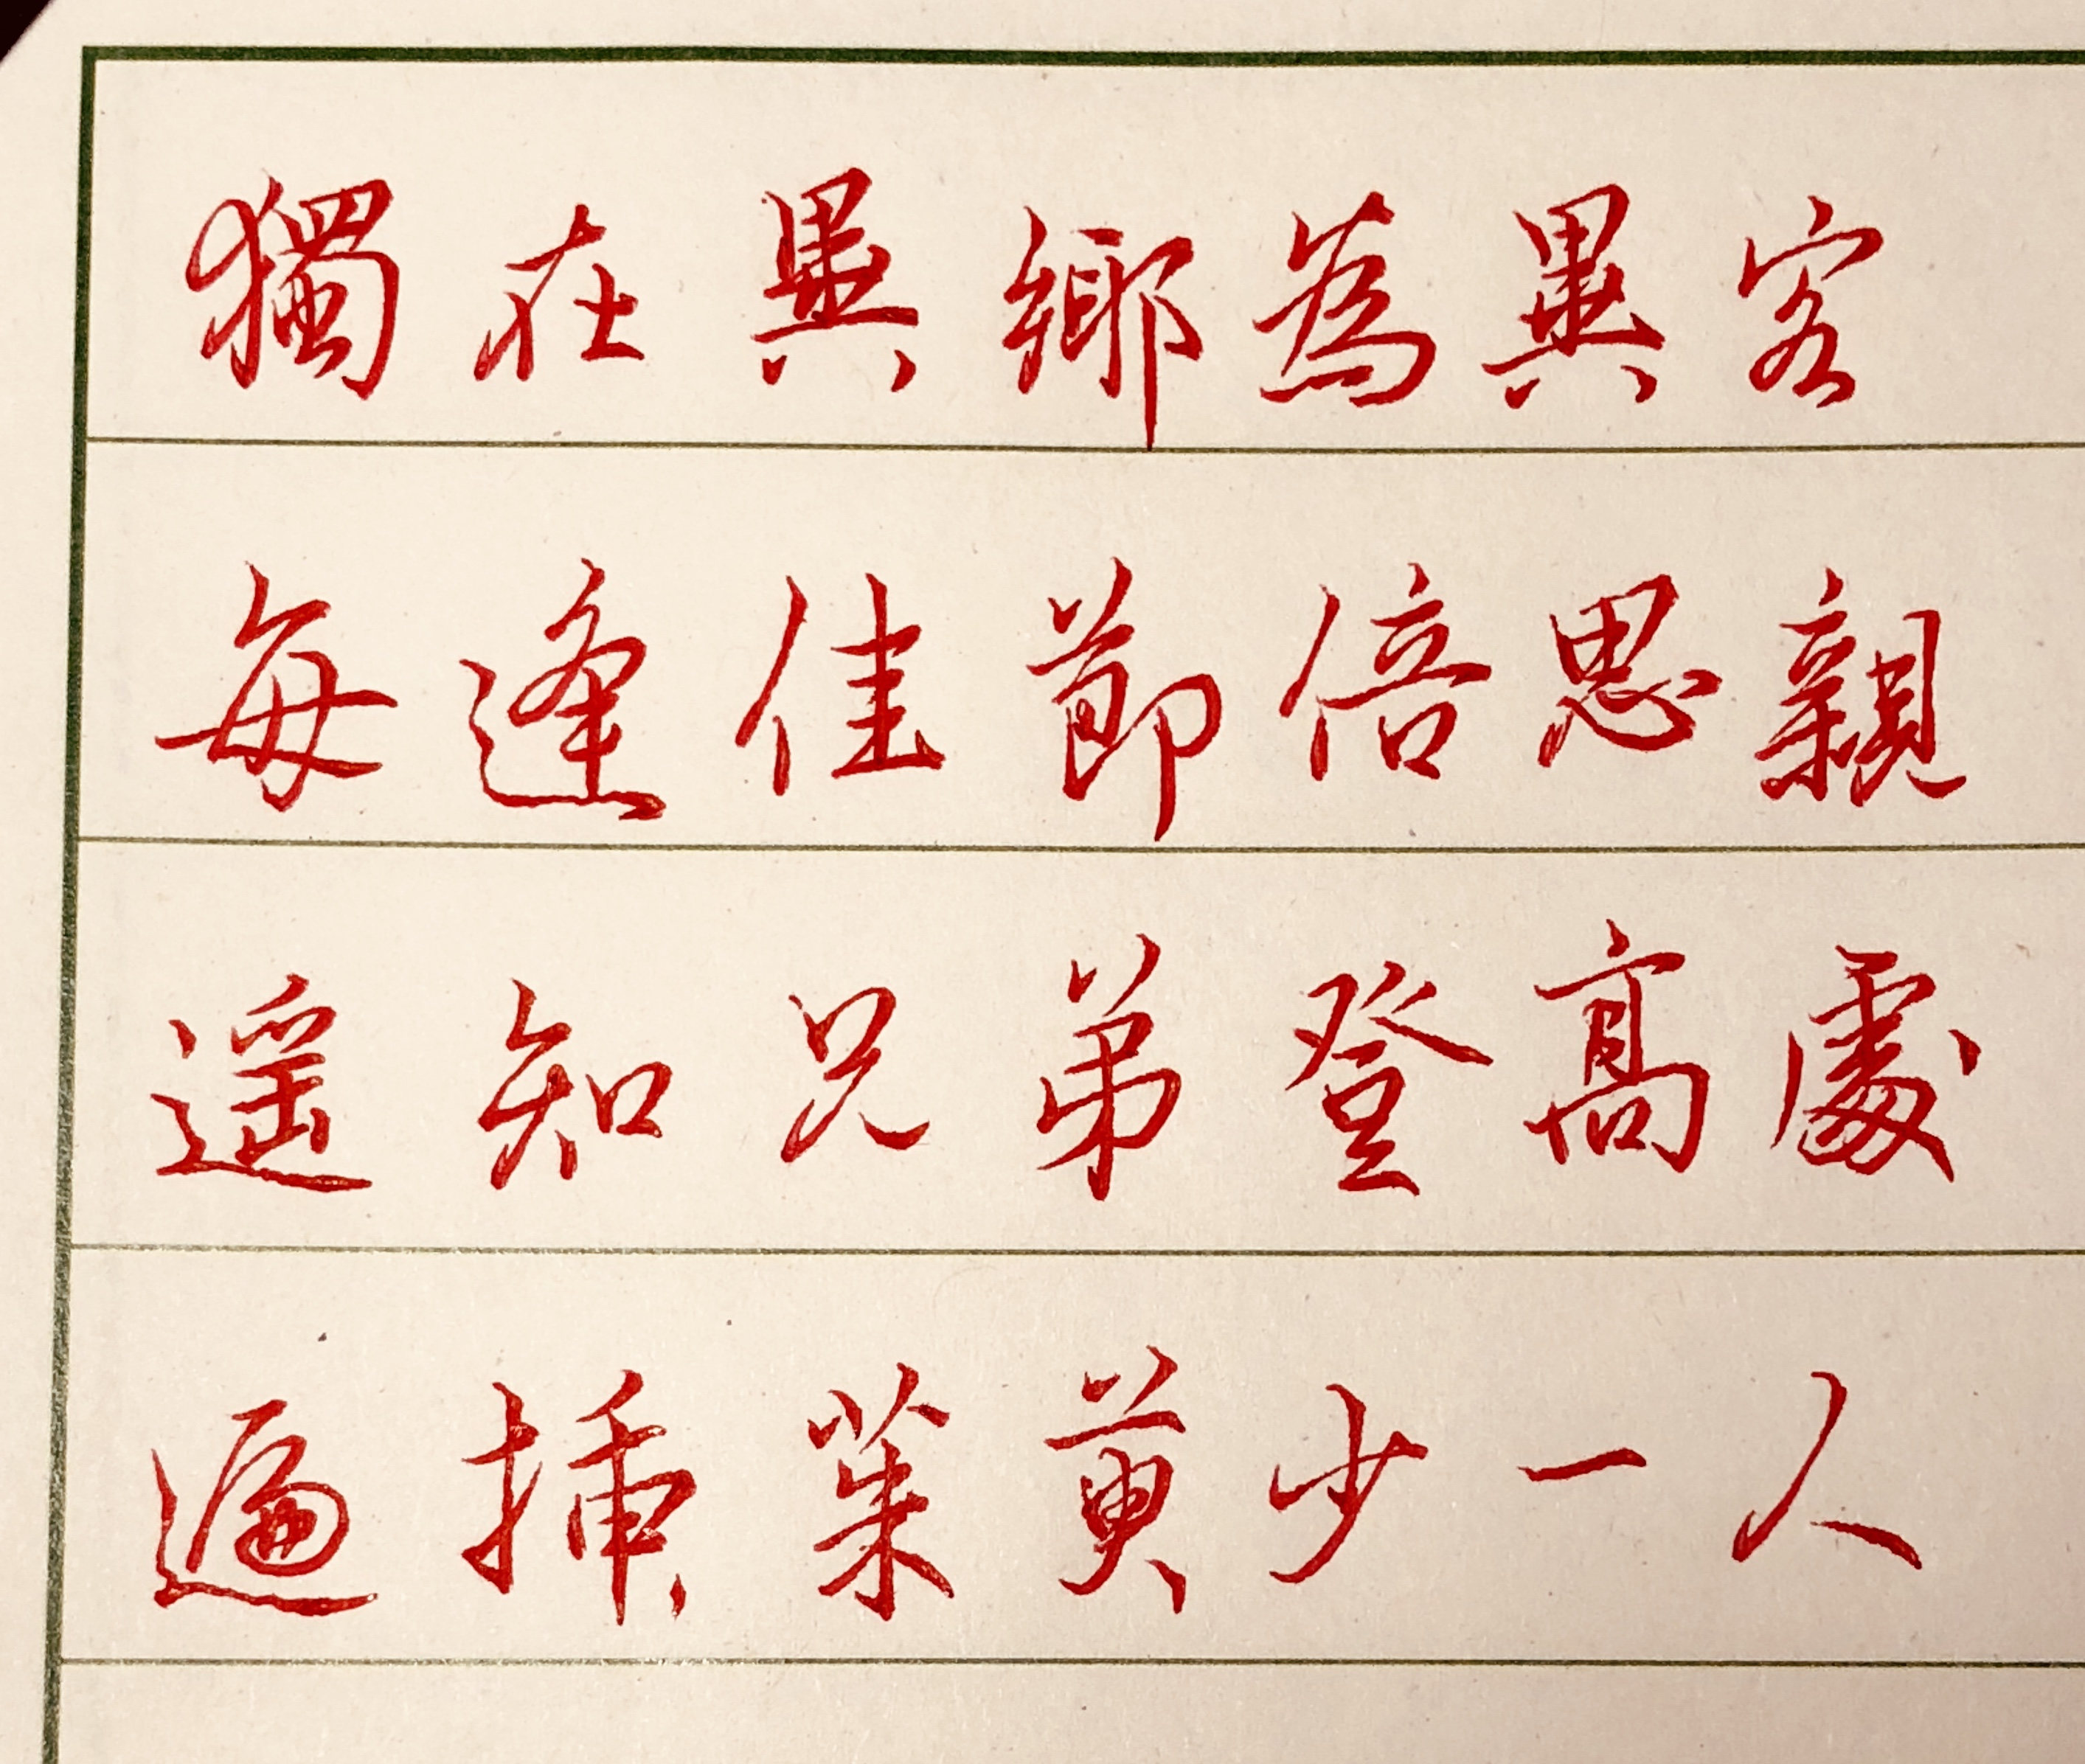 獨在異鄉為異客
每逢佳節倍思親
遥知兄弟登高處
遍插茱萸少一人